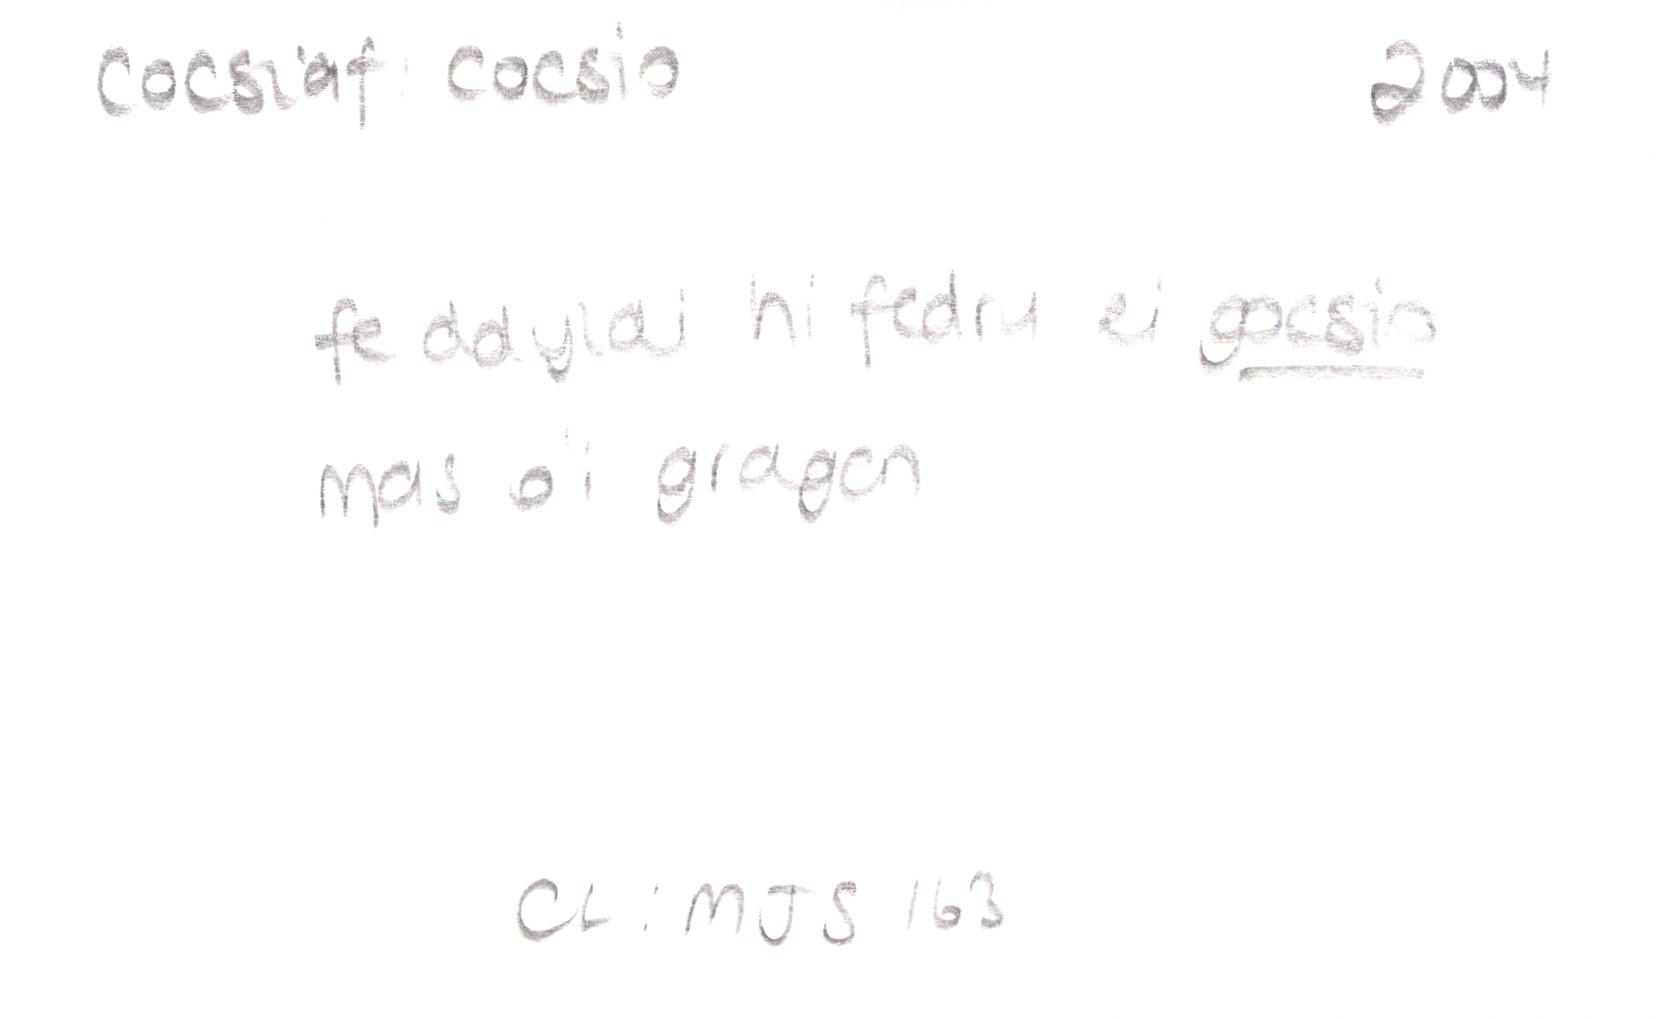 cocsiaf: cocsio 2004
fe ddylai hi fedru ei gocsio
mas o'i gragen
CL: MJS 163